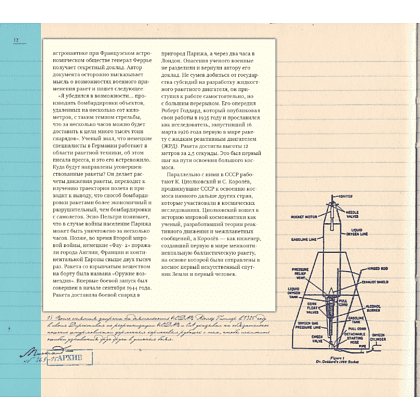 12
астронавтике при Французском астро-
номическом обществе генерал Феррье
получает секретный доклад. Автор
документа осторожно высказывает
мысль о возможностях военного при-
менения ракет и пишет следующее:
«Я убедился в возможности… про-
изводить бомбардировки объектов,
удаленных на несколько сот кило-
метров, с таким темпом стрельбы,
что за несколько часов можно будет
доставить к цели много тысяч тонн
снарядов». Ученый знал, что немецкие
специалисты в Германии работают в
области ракетной техники, об этом
писала пресса, и это его встревожило.
Куда будут направлены усовершен-
ствованные ракеты? Он делает рас-
четы движения ракеты, переходит к
изучению траектории полета и при-
ходит к выводу, что способ бомбарди-
ровки ракетами более экономичный и
разрушительный, чем бомбардировки
с самолетов. Эсно-Пельтри понимает,
что в случае войны население Парижа
может быть уничтожено за несколько
часов. Позже, во время Второй миро-
вой войны, немецкие «Фау-2» поража-
ли города Англии, Франции и конти-
нентальной Европы свыше двух тысяч
раз. Ракета со взрывчатым веществом
на борту была названа «Оружие воз-
мездия». Впервые боевой запуск был
совершен в начале сентября 1944 года.
Ракета доставила боевой снаряд в
пригород Парижа, а через два часа в
Лондон. Опасения ученого военные
не разделили и вернули автору его
доклад. Не сумев добиться от государ-
ства субсидий на разработку жидкост-
ного ракетного двигателя, он при-
ступил к работе самостоятельно, но
с большим перерывом. Его опередил
Роберт Годдард, который опубликовал
свои работы в 1935 году и прославился
как исследователь, запустивший 16
марта 1926 года первую в мире раке-
ту с жидким реактивным двигателем
(ЖРД). Ракета достигла высоты 12
метров за 2,5 секунды. Это был первый
шаг на пути освоения большого кос-
моса.
Параллельно с ними в СССР рабо-
тают К. Циолковский и С. Королёв,
продвинувшие СССР к освоению кос-
моса намного дальше других стран,
которые участвовали в космических
исследованиях. Циолковский вошел в
историю мировой космонавтики как
ученый, разработавший теорию реак-
тивного движения и межпланетных
сообщений, а Королёв — как инженер,
создавший первую в мире межконти-
нентальную баллистическую ракету,
на основе которой были отправлены в
космос первый искусственный спут-
ник Земли и первый человек.
IGNITER
ROCKET MOTOR
NEEDLE VALVES
GASOLINE LINE
LIQUID OXYGEN LINE
PRESSURE RELIEF VENT
HINGED ROD
EXHAUST SHIELD
CORK FLOAT VALVES
PULL CORD
ALCOHOL BURNER
GASOLINE TANK
LIQUID OXYGEN TANK
PIPE
CHECK VALVE
PULL CORD
DETACHABLE STARTING HOSE
OXYGEN CYLINDER
Figure 1
Dr. Goddard's 1926 Rocket
АРХИВ